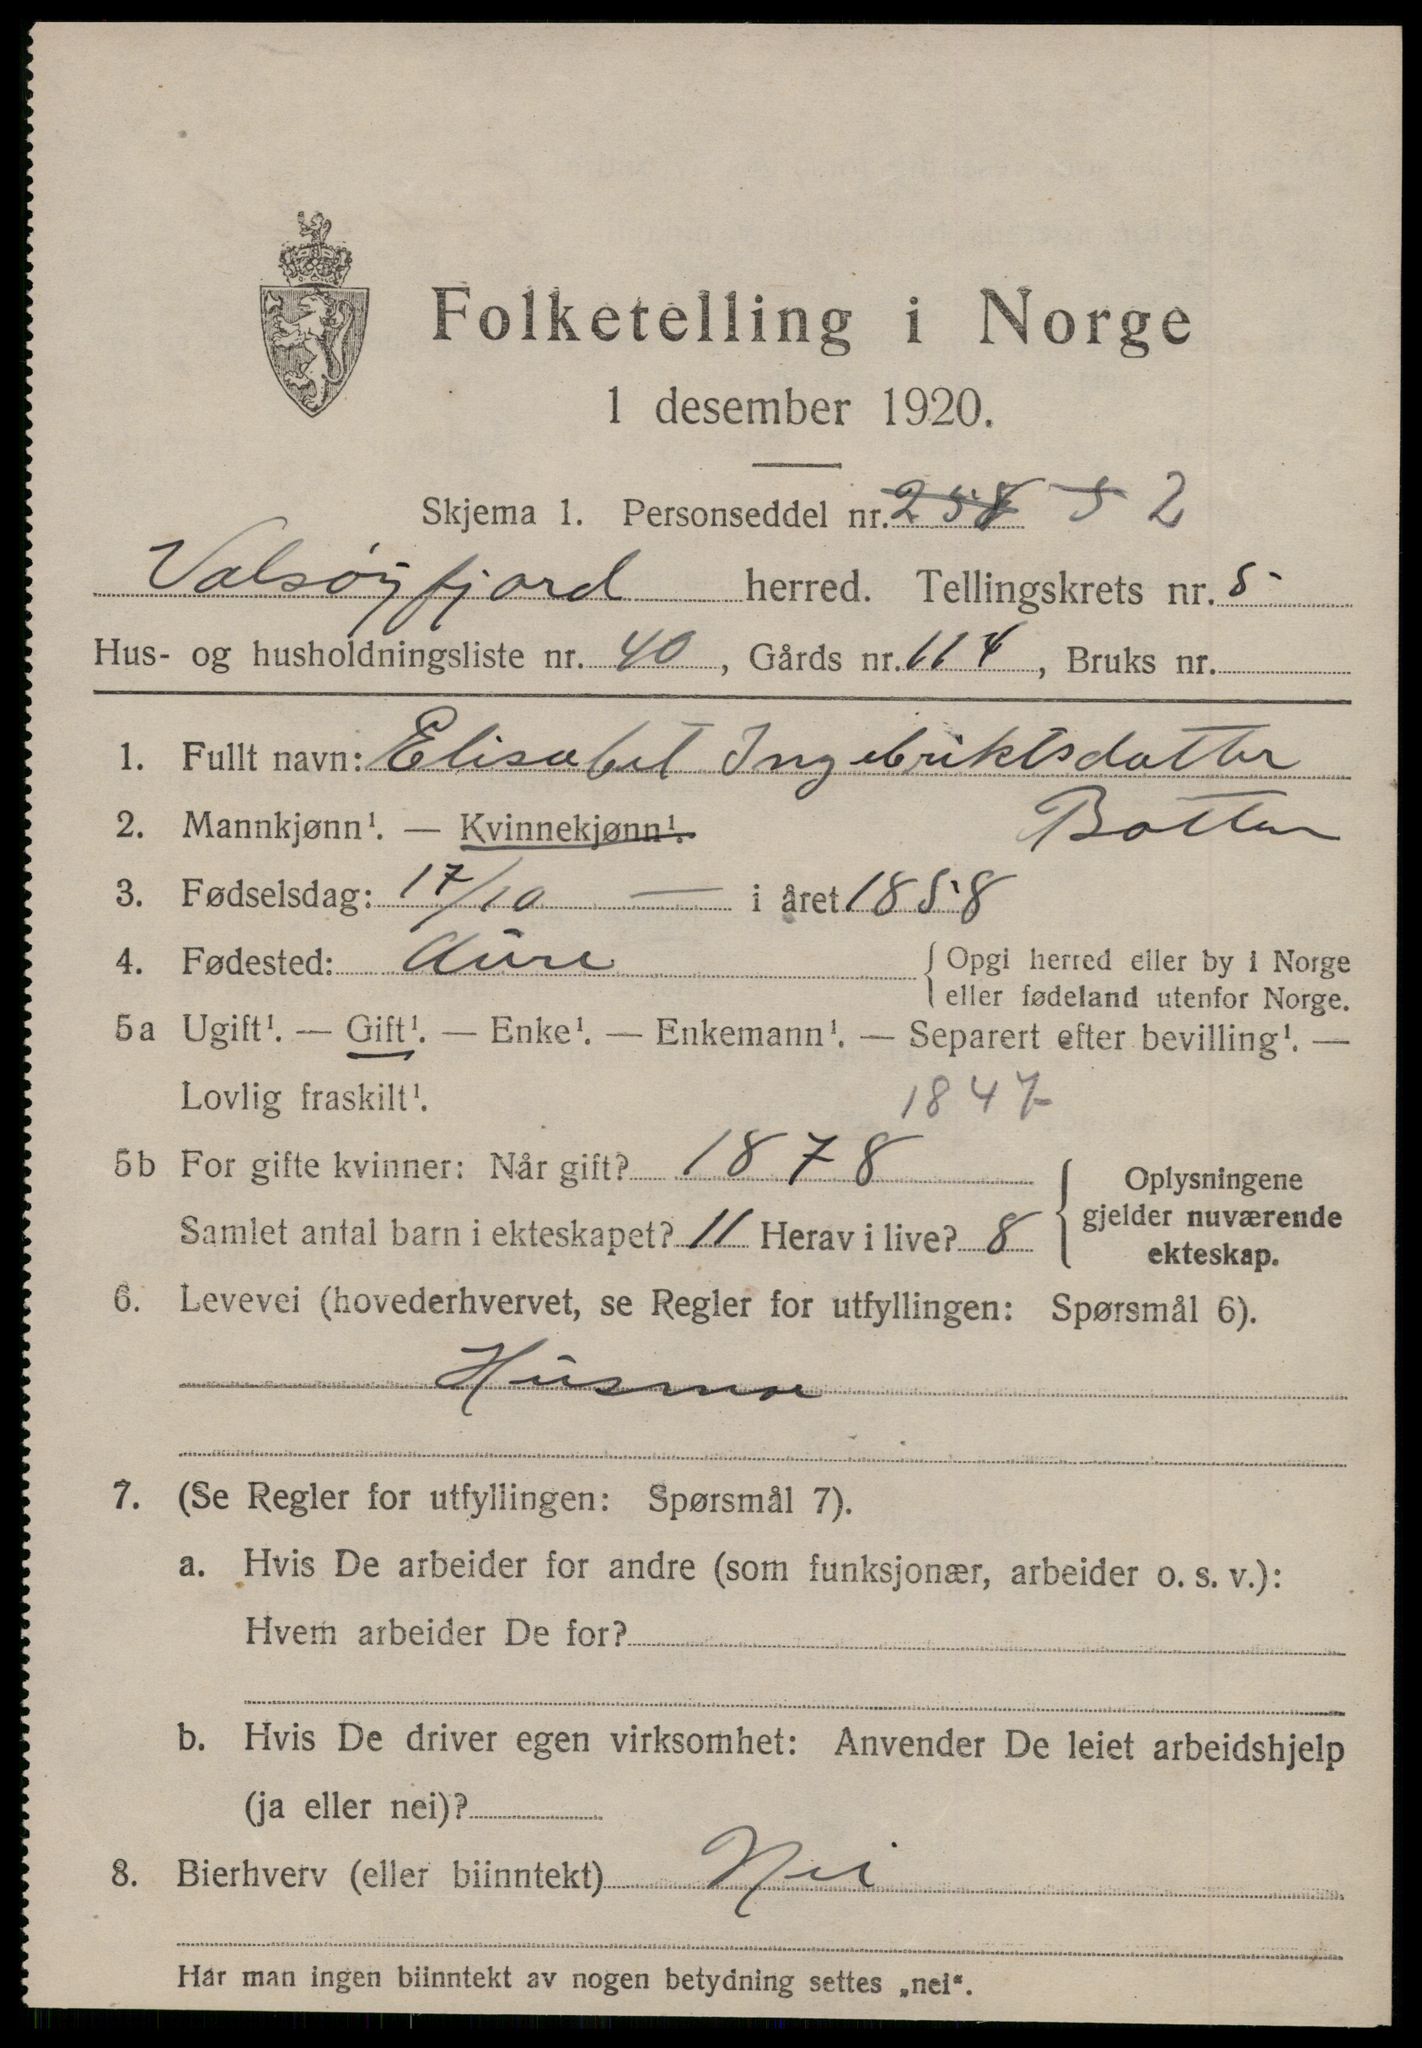 Folketelling i Norge
1 desember 1920.
Skjema 1. Personseddel nr. 258 5 2
Valsøyfjord herred. Tellingskrets nr. 5
Hus- og husholdningsliste nr. 40, Gårds nr. 114, Bruks nr.
1. Fullt navn: Elisabet Ingebriktsdatter
Botten
2. Mannkjønn¹. — Kvinnekjønn¹.
3. Fødselsdag: 17/10 — i året 1858
4. Fødested: Aure { Opgi herred eller by i Norge
eller fødeland utenfor Norge.
5a Ugift¹. — Gift¹. — Enke¹. — Enkemann¹. — Separert efter bevilling¹. —
Lovlig fraskilt¹. 1847
5b For gifte kvinner: Når gift? 1878
Samlet antal barn i ekteskapet? 11 Herav i live? 8
{ Oplysningene
gjelder nuværende
ekteskap.
6. Levevei (hovederhvervet, se Regler for utfyllingen: Spørsmål 6).
Husmor
7. (Se Regler for utfyllingen: Spørsmål 7).
a. Hvis De arbeider for andre (som funksjonær, arbeider o. s. v.):
Hvem arbeider De for?
b. Hvis De driver egen virksomhet: Anvender De leiet arbeidshjelp
(ja eller nei)?
8. Bierhverv (eller biinntekt) Nei
Har man ingen biinntekt av nogen betydning settes „nei“.